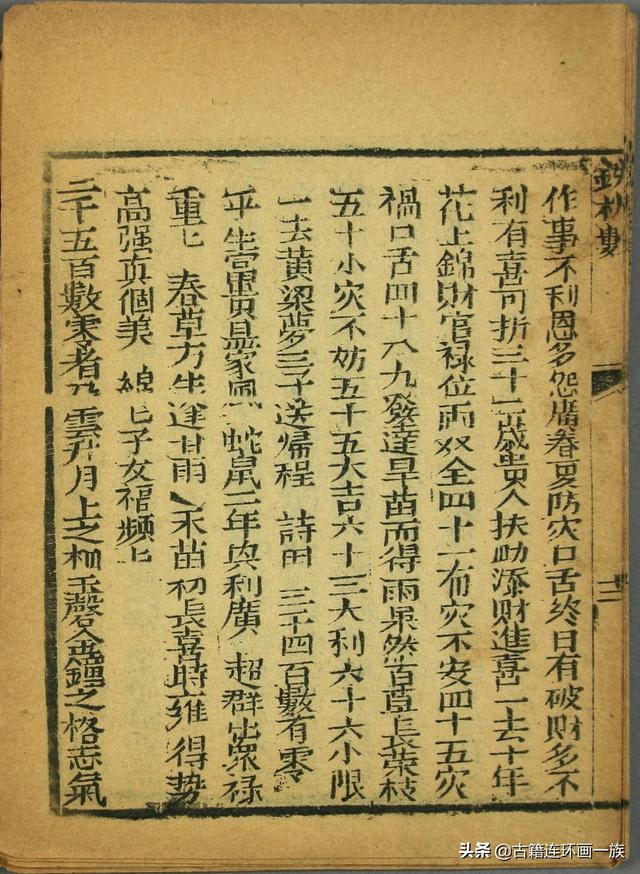 鉄板數
十二
作事不利恩多怨廣春夏防灾口舌終日有破財多不
利有喜可折三十二歲貴人扶助添財進喜一去十年
花上錦財官禄位兩双全四十一布灾不安四十五灾
禍口舌四十八九發達旱苗而得雨果然古草長荣枝
五十小灾不妨五十五大吉六十三大利六十六小限
一去黄梁夢三子送帰程 詩曰 三千四百數有零
平生富貴益家風 蛇鼠二年與利廣 超群出眾禄
重七 春草方生逢甘雨 禾苗初長喜時雍 得势
高强真個美 綿七子女福頻上
三千五百數零者乃 雲升月上之 玉磬金鐘之格志氣
头条 @古籍连环画一族